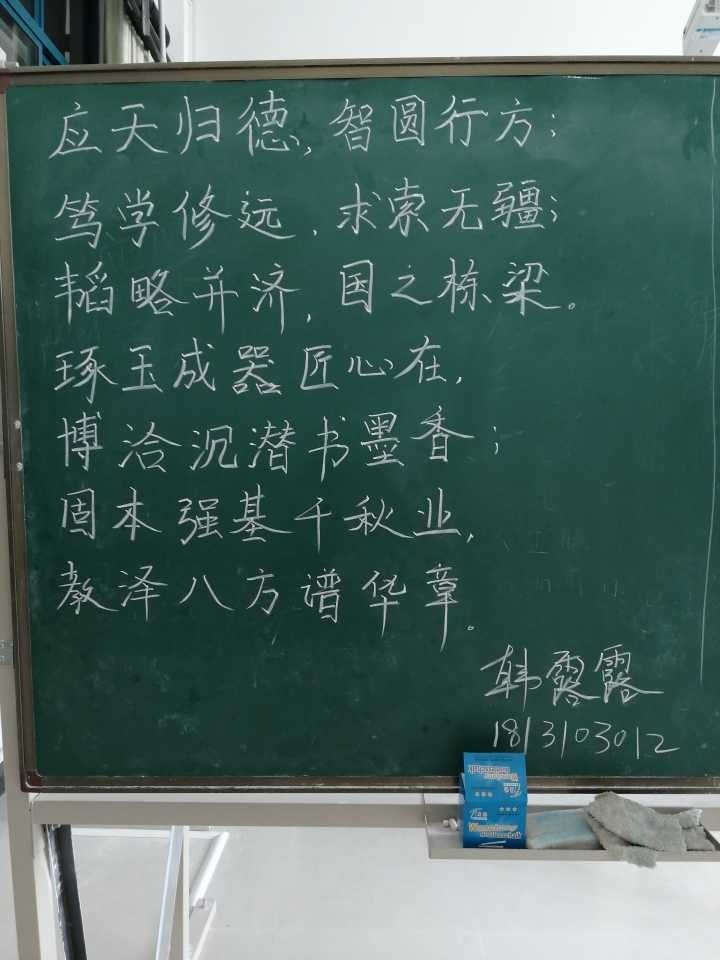 应天归德,智圆行方;
笃学修远,求索无疆;
韬略并济,国之栋梁。
琢玉成器匠心在,
博洽沉潜书墨香;
固本强基千秋业,
教泽八方谱华章。
韩露露
1813103012